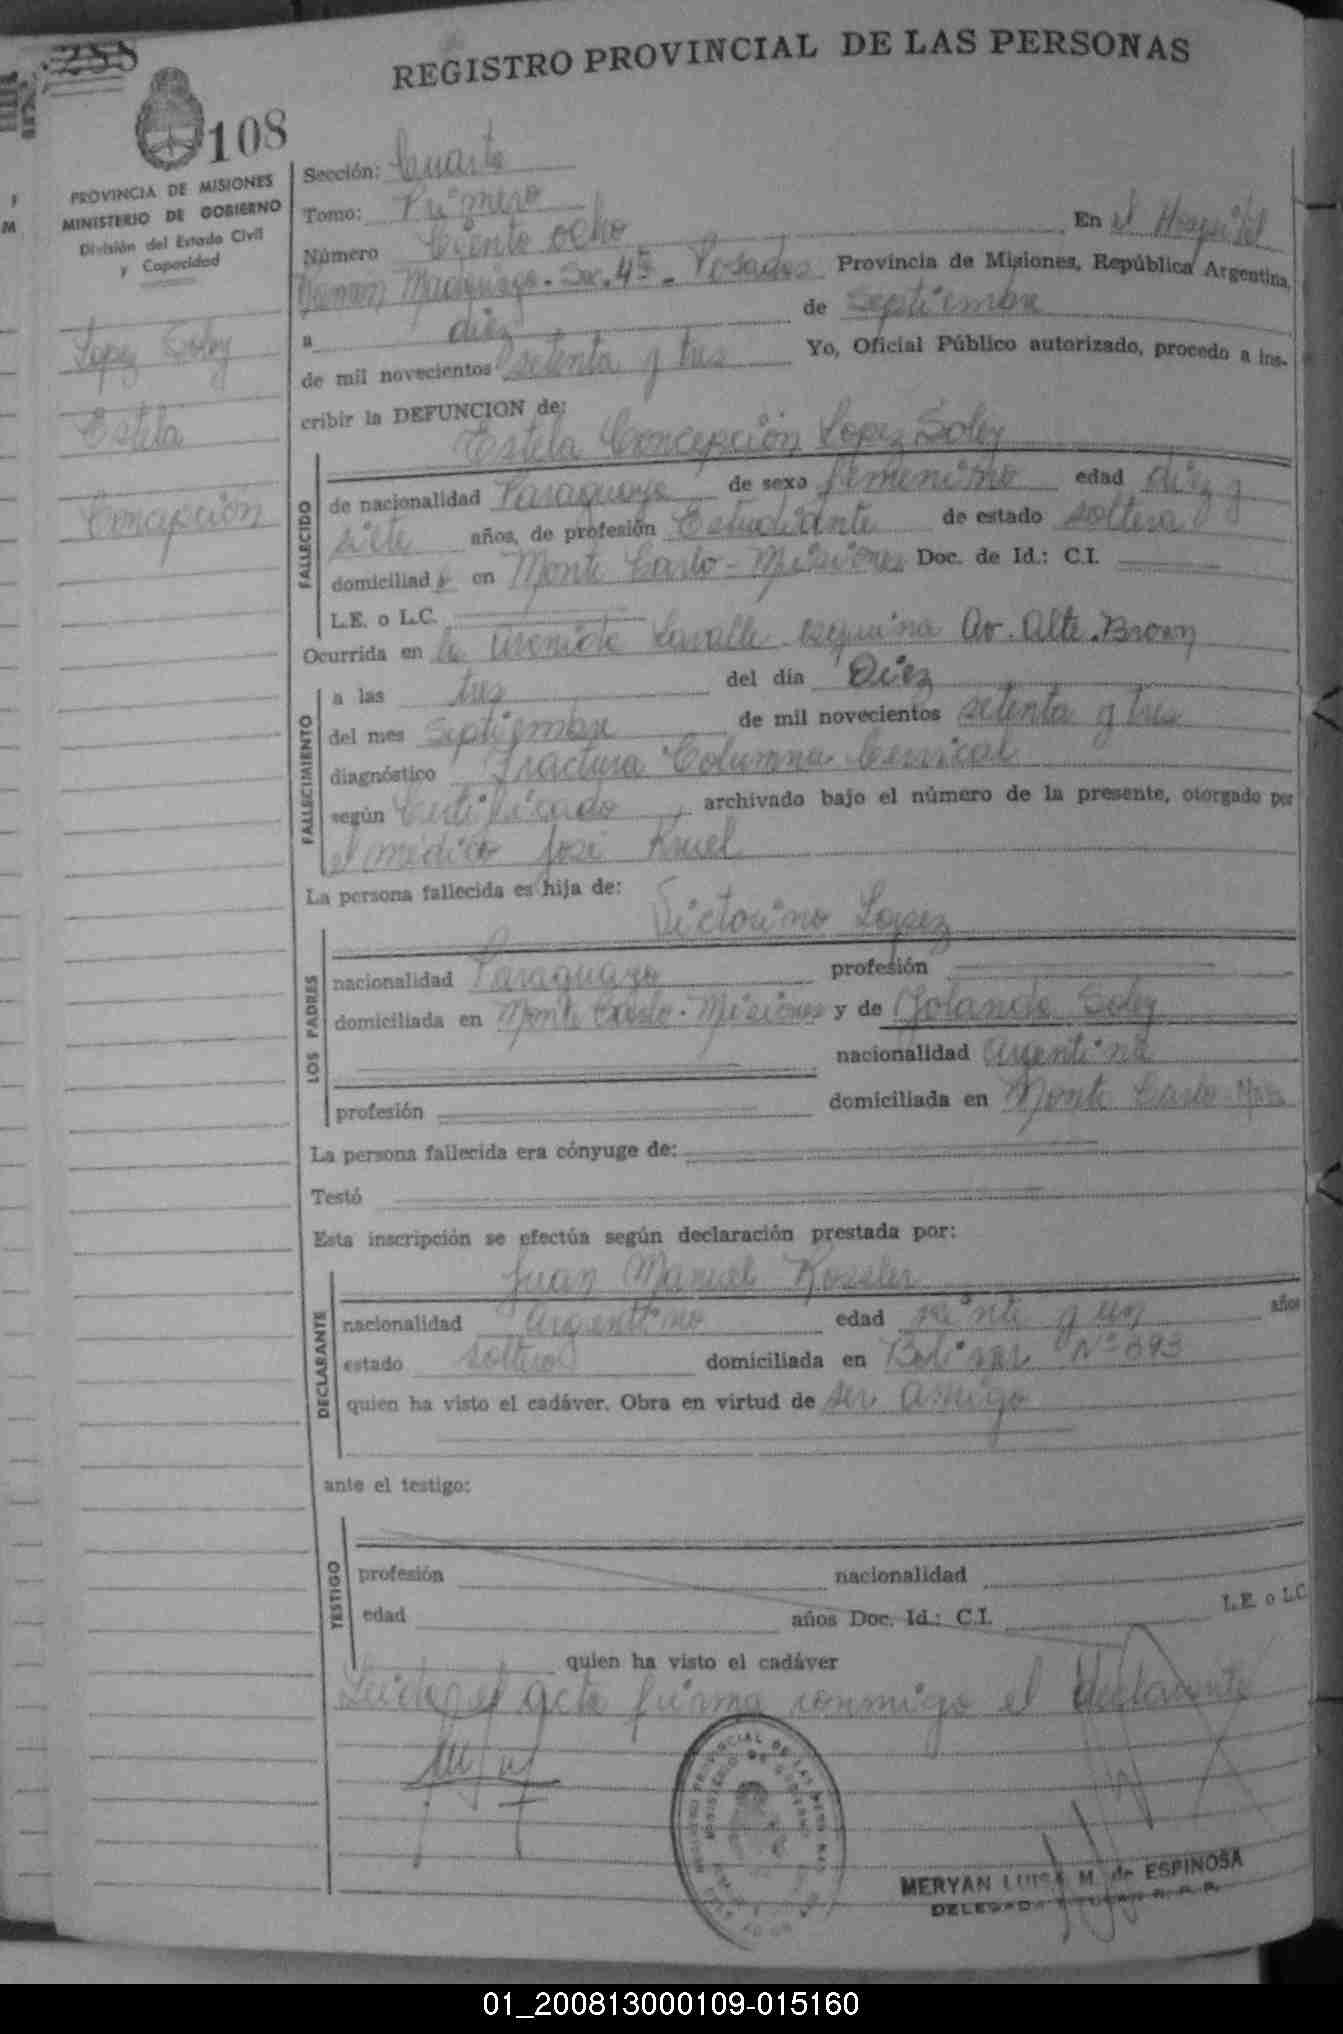 REGISTRO PROVINCIAL DE LAS PERSONAS
288
108
PROVINCIA DE MISIONES
MINISTERIO DE GOBIERNO
División del Estado Civil
y Capacidad
Lopez Soley
Estela
Concepción
Sección: Cuarta
Tomo: Primero
Número Ciento ocho En el Hospital
Ramon Madariaga - Sec. 4ª - Posadas Provincia de Misiones, República Argentina,
a diez de Septiembre
de mil novecientos setenta y tres Yo, Oficial Público autorizado, procedo a ins-
cribir la DEFUNCION de:
Estela Concepción Lopez Soley
FALLECIDO
de nacionalidad Paraguaya de sexo femenino edad diez y
siete años, de profesión Estudiante de estado soltera
domiciliada en Monte Carlo - Misiones Doc. de Id.: C.I.
L.E. o L.C.
Ocurrida en la Avenida Lavalle esquina Av. Alte. Brown
FALLECIMIENTO
a las tres del día Diez
del mes Septiembre de mil novecientos setenta y tres
diagnóstico Fractura Columna Cervical
según Certificado archivado bajo el número de la presente, otorgado por
el médico José
La persona fallecida es hija de:
Victorino Lopez
LOS PADRES
nacionalidad Paraguayo profesión
domiciliada en Monte Carlo - Misiones y de Yolanda Soley
nacionalidad Argentina
profesión domiciliada en Monte Carlo - Mnes
La persona fallecida era cónyuge de:
Testó
Esta inscripción se efectúa según declaración prestada por:
Juan Manuel Rossler
DECLARANTE
nacionalidad Argentino edad veinte y un años
estado soltero domiciliada en Bolivar Nº 393
quien ha visto el cadáver. Obra en virtud de ser Amigo
ante el testigo:
TESTIGO
profesión nacionalidad
edad años Doc. Id.: C.I. L.E. o L.C
quien ha visto el cadáver
Leida el acta firma conmigo el declarante
MERYAN LUISA M. de ESPINOSA
DELEGADA TITULAR R. P. P.
01_200813000109-015160